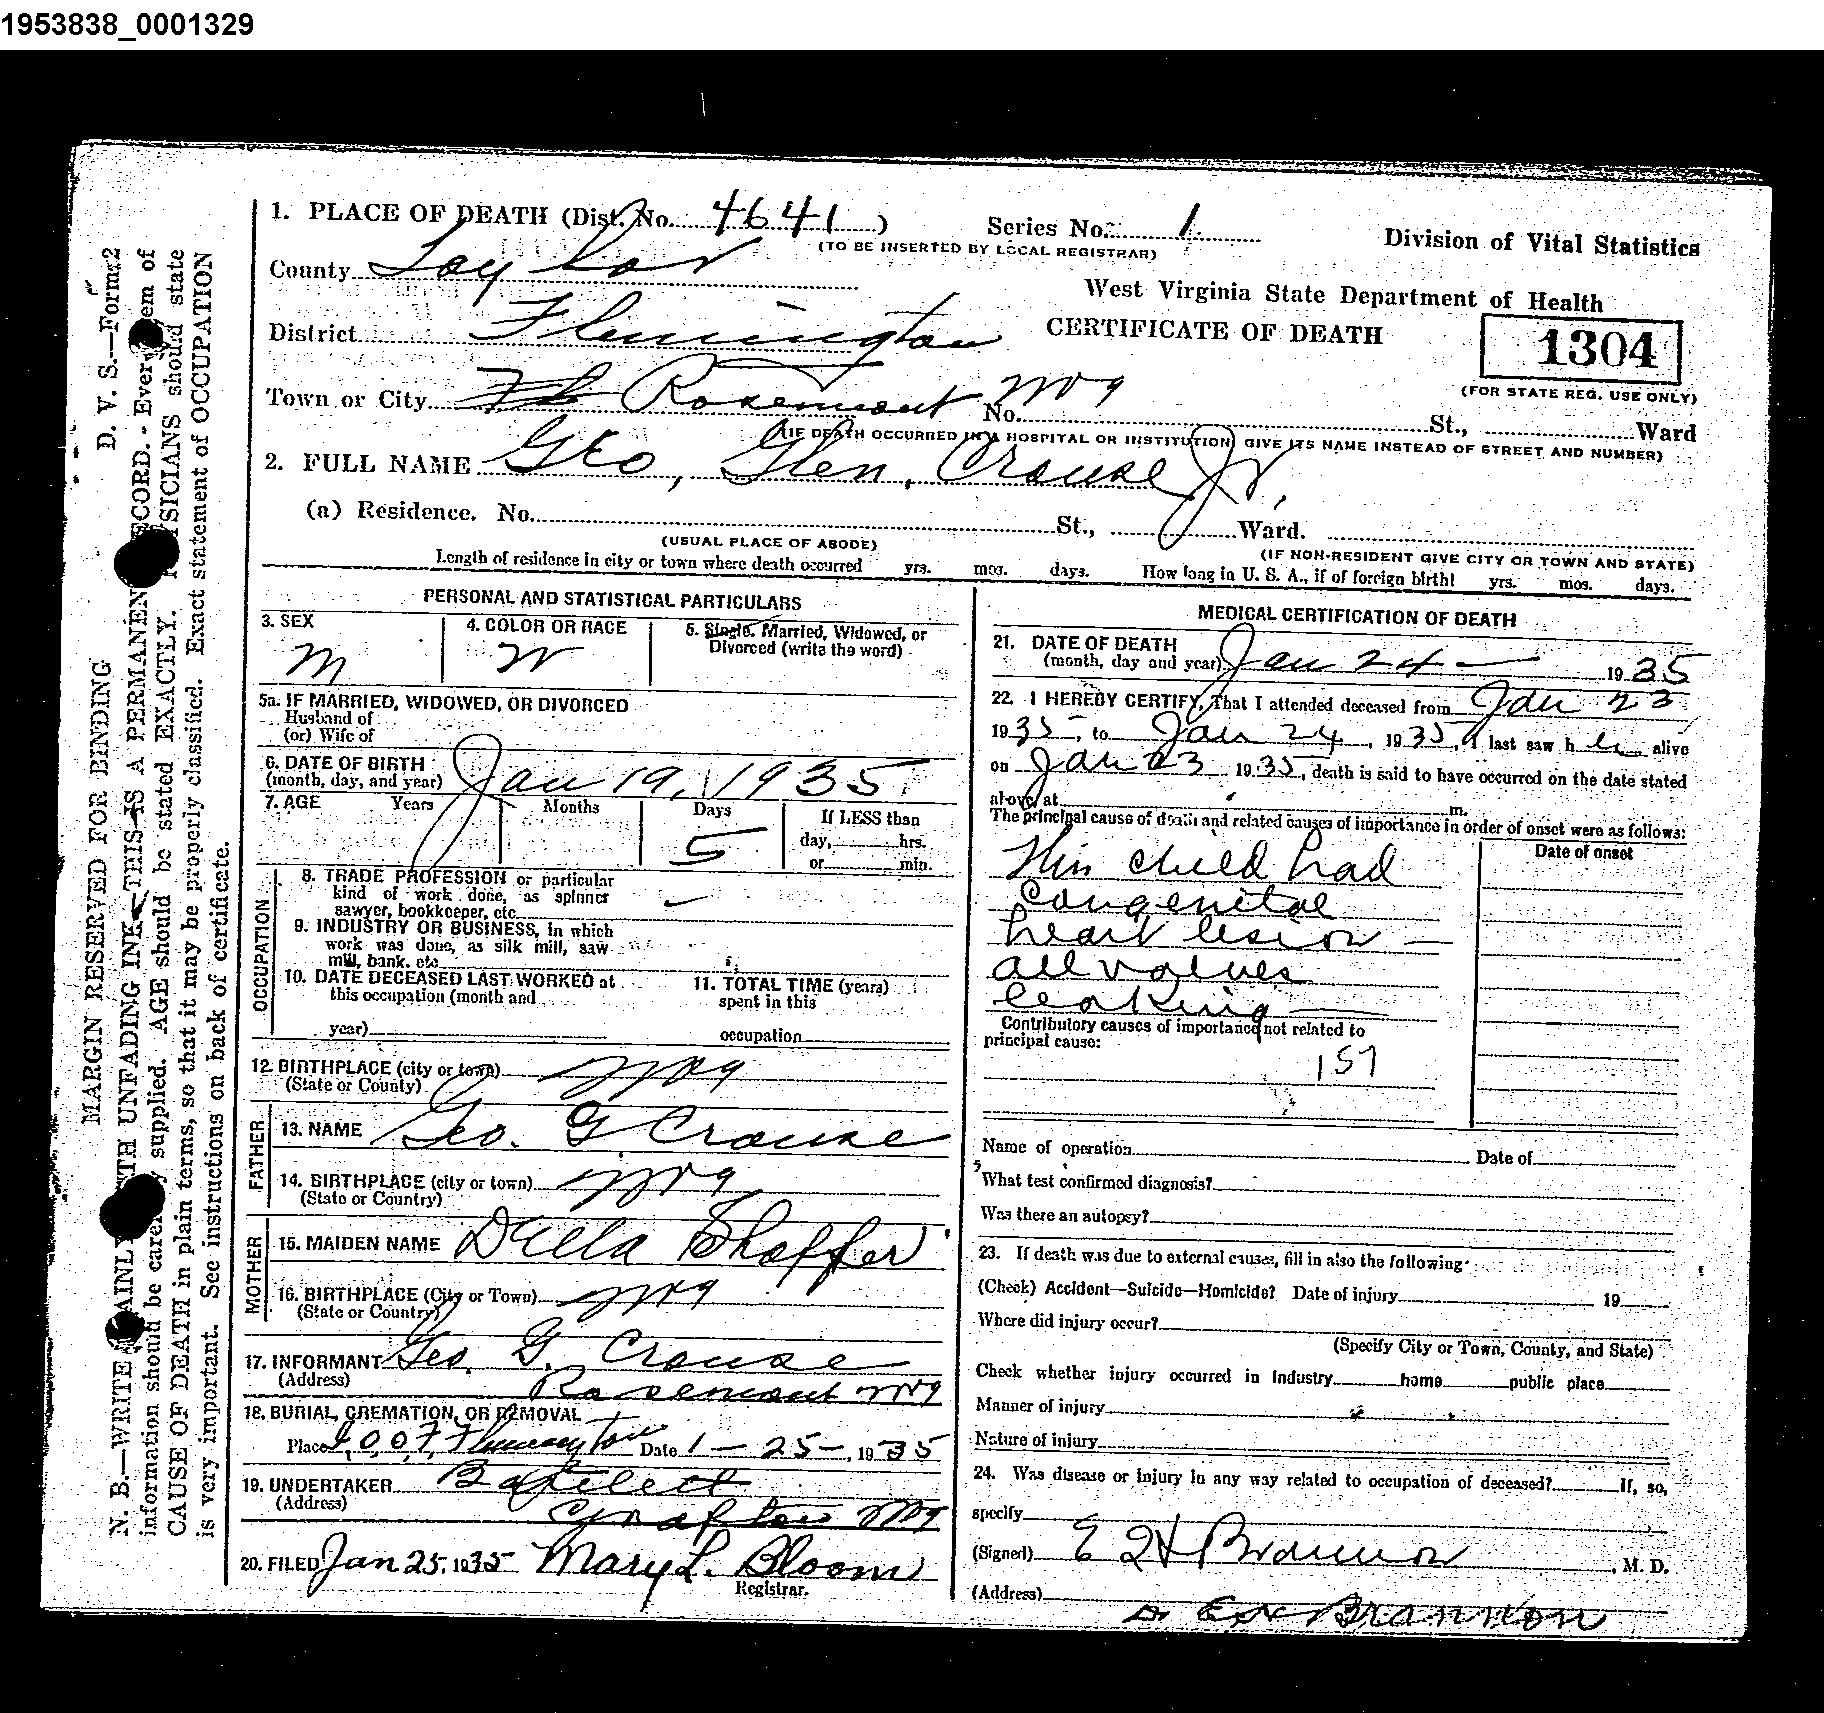 1953838_0001329
1. PLACE OF DEATH (Dist. No. 4641 ) Series No. 1 Division of Vital Statistics
(TO BE INSERTED BY LOCAL REGISTRAR)
County Taylor
West Virginia State Department of Health
District Flemington CERTIFICATE OF DEATH 1304
(FOR STATE REG. USE ONLY)
Town or City Rosemont WVa No. St., Ward
(IF DEATH OCCURRED IN A HOSPITAL OR INSTITUTION, GIVE ITS NAME INSTEAD OF STREET AND NUMBER)
2. FULL NAME Geo, Glen, Crouse Jr,
(a) Residence. No. St., Ward.
(USUAL PLACE OF ABODE) (IF NON-RESIDENT GIVE CITY OR TOWN AND STATE)
Length of residence in city or town where death occurred yrs. mos. days. How long in U. S. A., if of foreign birth? yrs. mos. days.
PERSONAL AND STATISTICAL PARTICULARS
3. SEX 4. COLOR OR RACE 5. Single, Married, Widowed, or
Divorced (write the word)
M W
5a. IF MARRIED, WIDOWED, OR DIVORCED
Husband of
(or) Wife of
6. DATE OF BIRTH
(month, day, and year) Jan 19, 1935
7. AGE Years Months Days If LESS than
day, hrs.
or min.
5
OCCUPATION
8. TRADE PROFESSION or particular
kind of work done, as spinner
sawyer, bookkeeper, etc. —
9. INDUSTRY OR BUSINESS, in which
work was done, as silk mill, saw
mill, bank, etc.
10. DATE DECEASED LAST WORKED at 11. TOTAL TIME (years)
this occupation (month and spent in this
year) occupation
12. BIRTHPLACE (city or town) WVa
(State or County)
FATHER
13. NAME Geo. G Crouse
14. BIRTHPLACE (city or town) WVa
(State or Country)
MOTHER
15. MAIDEN NAME Della Shaffer
16. BIRTHPLACE (City or Town) WVa
(State or Country)
17. INFORMANT Geo. G. Crouse
(Address) Rosemont WVa
18. BURIAL, CREMATION, OR REMOVAL
Place I.O.O.F. Flemington Date 1-25-, 1935
19. UNDERTAKER Bartlett
(Address) Grafton WVa
20. FILED Jan 25, 1935 Mary L. Bloom
Registrar.
MEDICAL CERTIFICATION OF DEATH
21. DATE OF DEATH
(month, day and year) Jan 24 — 1935
22. I HEREBY CERTIFY, That I attended deceased from Jan 23
1935, to Jan 24, 1935, I last saw h alive
on Jan 23 1935, death is said to have occurred on the date stated
above, at m.
The principal cause of death and related causes of importance in order of onset were as follows:
Date of onset
This child had
Congenital
heart lesion —
all valves
leaking —
Contributory causes of importance not related to
principal cause:
157
Name of operation Date of
What test confirmed diagnosis?
Was there an autopsy?
23. If death was due to external causes, fill in also the following:
(Check) Accident—Suicide—Homicide? Date of injury 19
Where did injury occur?
(Specify City or Town, County, and State)
Check whether injury occurred in Industry home public place
Manner of injury
Nature of injury
24. Was disease or injury in any way related to occupation of deceased? If, so,
specify
(Signed) E H Brannon, M. D.
(Address)
Dr EH Brannon
D. V. S.—Form 2
MARGIN RESERVED FOR BINDING
N. B.—WRITE PLAINLY WITH UNFADING INK—THIS IS A PERMANENT RECORD. - Every item of
information should be carefully supplied. AGE should be stated EXACTLY. PHYSICIANS should state
CAUSE OF DEATH in plain terms, so that it may be properly classified. Exact statement of OCCUPATION
is very important. See instructions on back of certificate.